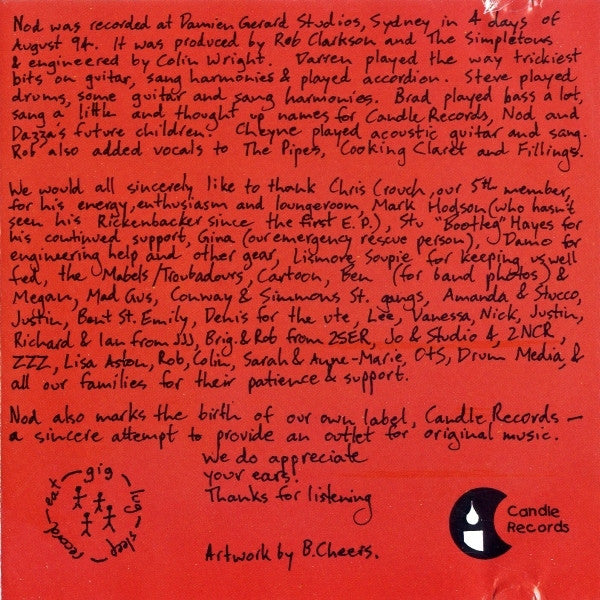 Nod was recorded at Damien Gerard Studios, Sydney in 4 days of
August 94. It was produced by Rob Clarkson and The Simpletons
& engineered by Colin Wright. Darren played the way trickiest
bits on guitar, sang harmonies & played accordion. Steve played
drums, some guitar and sang harmonies. Brad played bass a lot,
sang a little and thought up names for Candle Records, Nod and
Dazza's future children. Cheyne played acoustic guitar and sang.
Rob also added vocals to The Pipes, Cooking Claret and Fillings.
We would all sincerely like to thank Chris Crouch, our 5th member,
for his energy, enthusiasm and loungeroom, Mark Hodson (who hasn't
seen his Rickenbacker since the first E.P.), Stu "Bootleg" Hayes for
his continued support, Gina (our emergency rescue person), Damo for
engineering help and other gear, Lismore Soupie for keeping us well
fed, the Mabels/Troubadours, Cartoon, Ben (for band photos) &
Megan, Mad Gus, Conway & Simmons St. gangs, Amanda & Stucco,
Justin, Bent St. Emily, Denis for the ute, Lee, Vanessa, Nick, Justin,
Richard & Ian from JJJ, Brig. & Rob from 2SER, Jo & Studio 4, 2NCR,
ZZZ, Lisa Aston, Rob, Colin, Sarah & Anne-Marie, OTS, Drum Media, &
all our families for their patience & support.
Nod also marks the birth of our own label, Candle Records —
a sincere attempt to provide an outlet for original music.
We do appreciate
your ears.
Thanks for listening
gig - lug - sleep - record - eat -
Candle
Records
Artwork by B. Cheers.